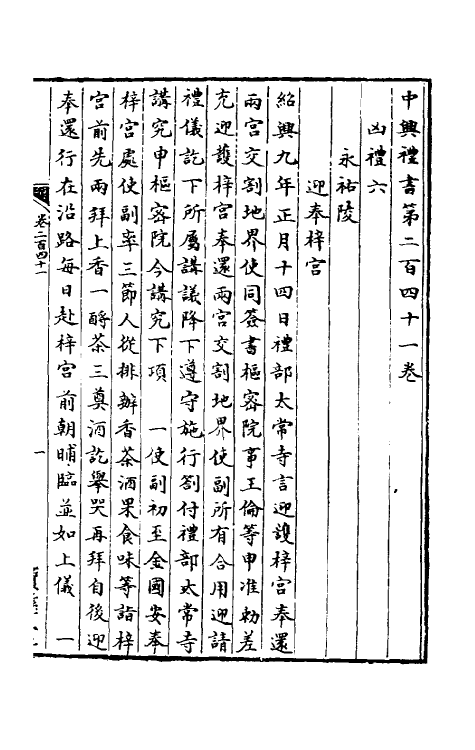 中興禮書第二百四十一卷
凶禮六
永祐陵
迎奉梓宮
紹興九年正月十四日禮部太常寺言迎護梓宮奉還
兩宮交割地界使同簽書樞密院事王倫等申准勅差
充迎護梓宮奉還兩宮交割地界使副所有合用迎請
禮儀訖下所屬講議降下遵守施行劄付禮部太常寺
講究申樞密院今講究下項　一使副初至金國安奉
梓宮處使副率三節人從排辦香茶酒果食味等詣梓
宮前先兩拜上香一酹茶三奠酒訖舉哭再拜自後迎
奉還行在沿路每日赴梓宮前朝晡臨並如上儀　一
卷二百四十一
一